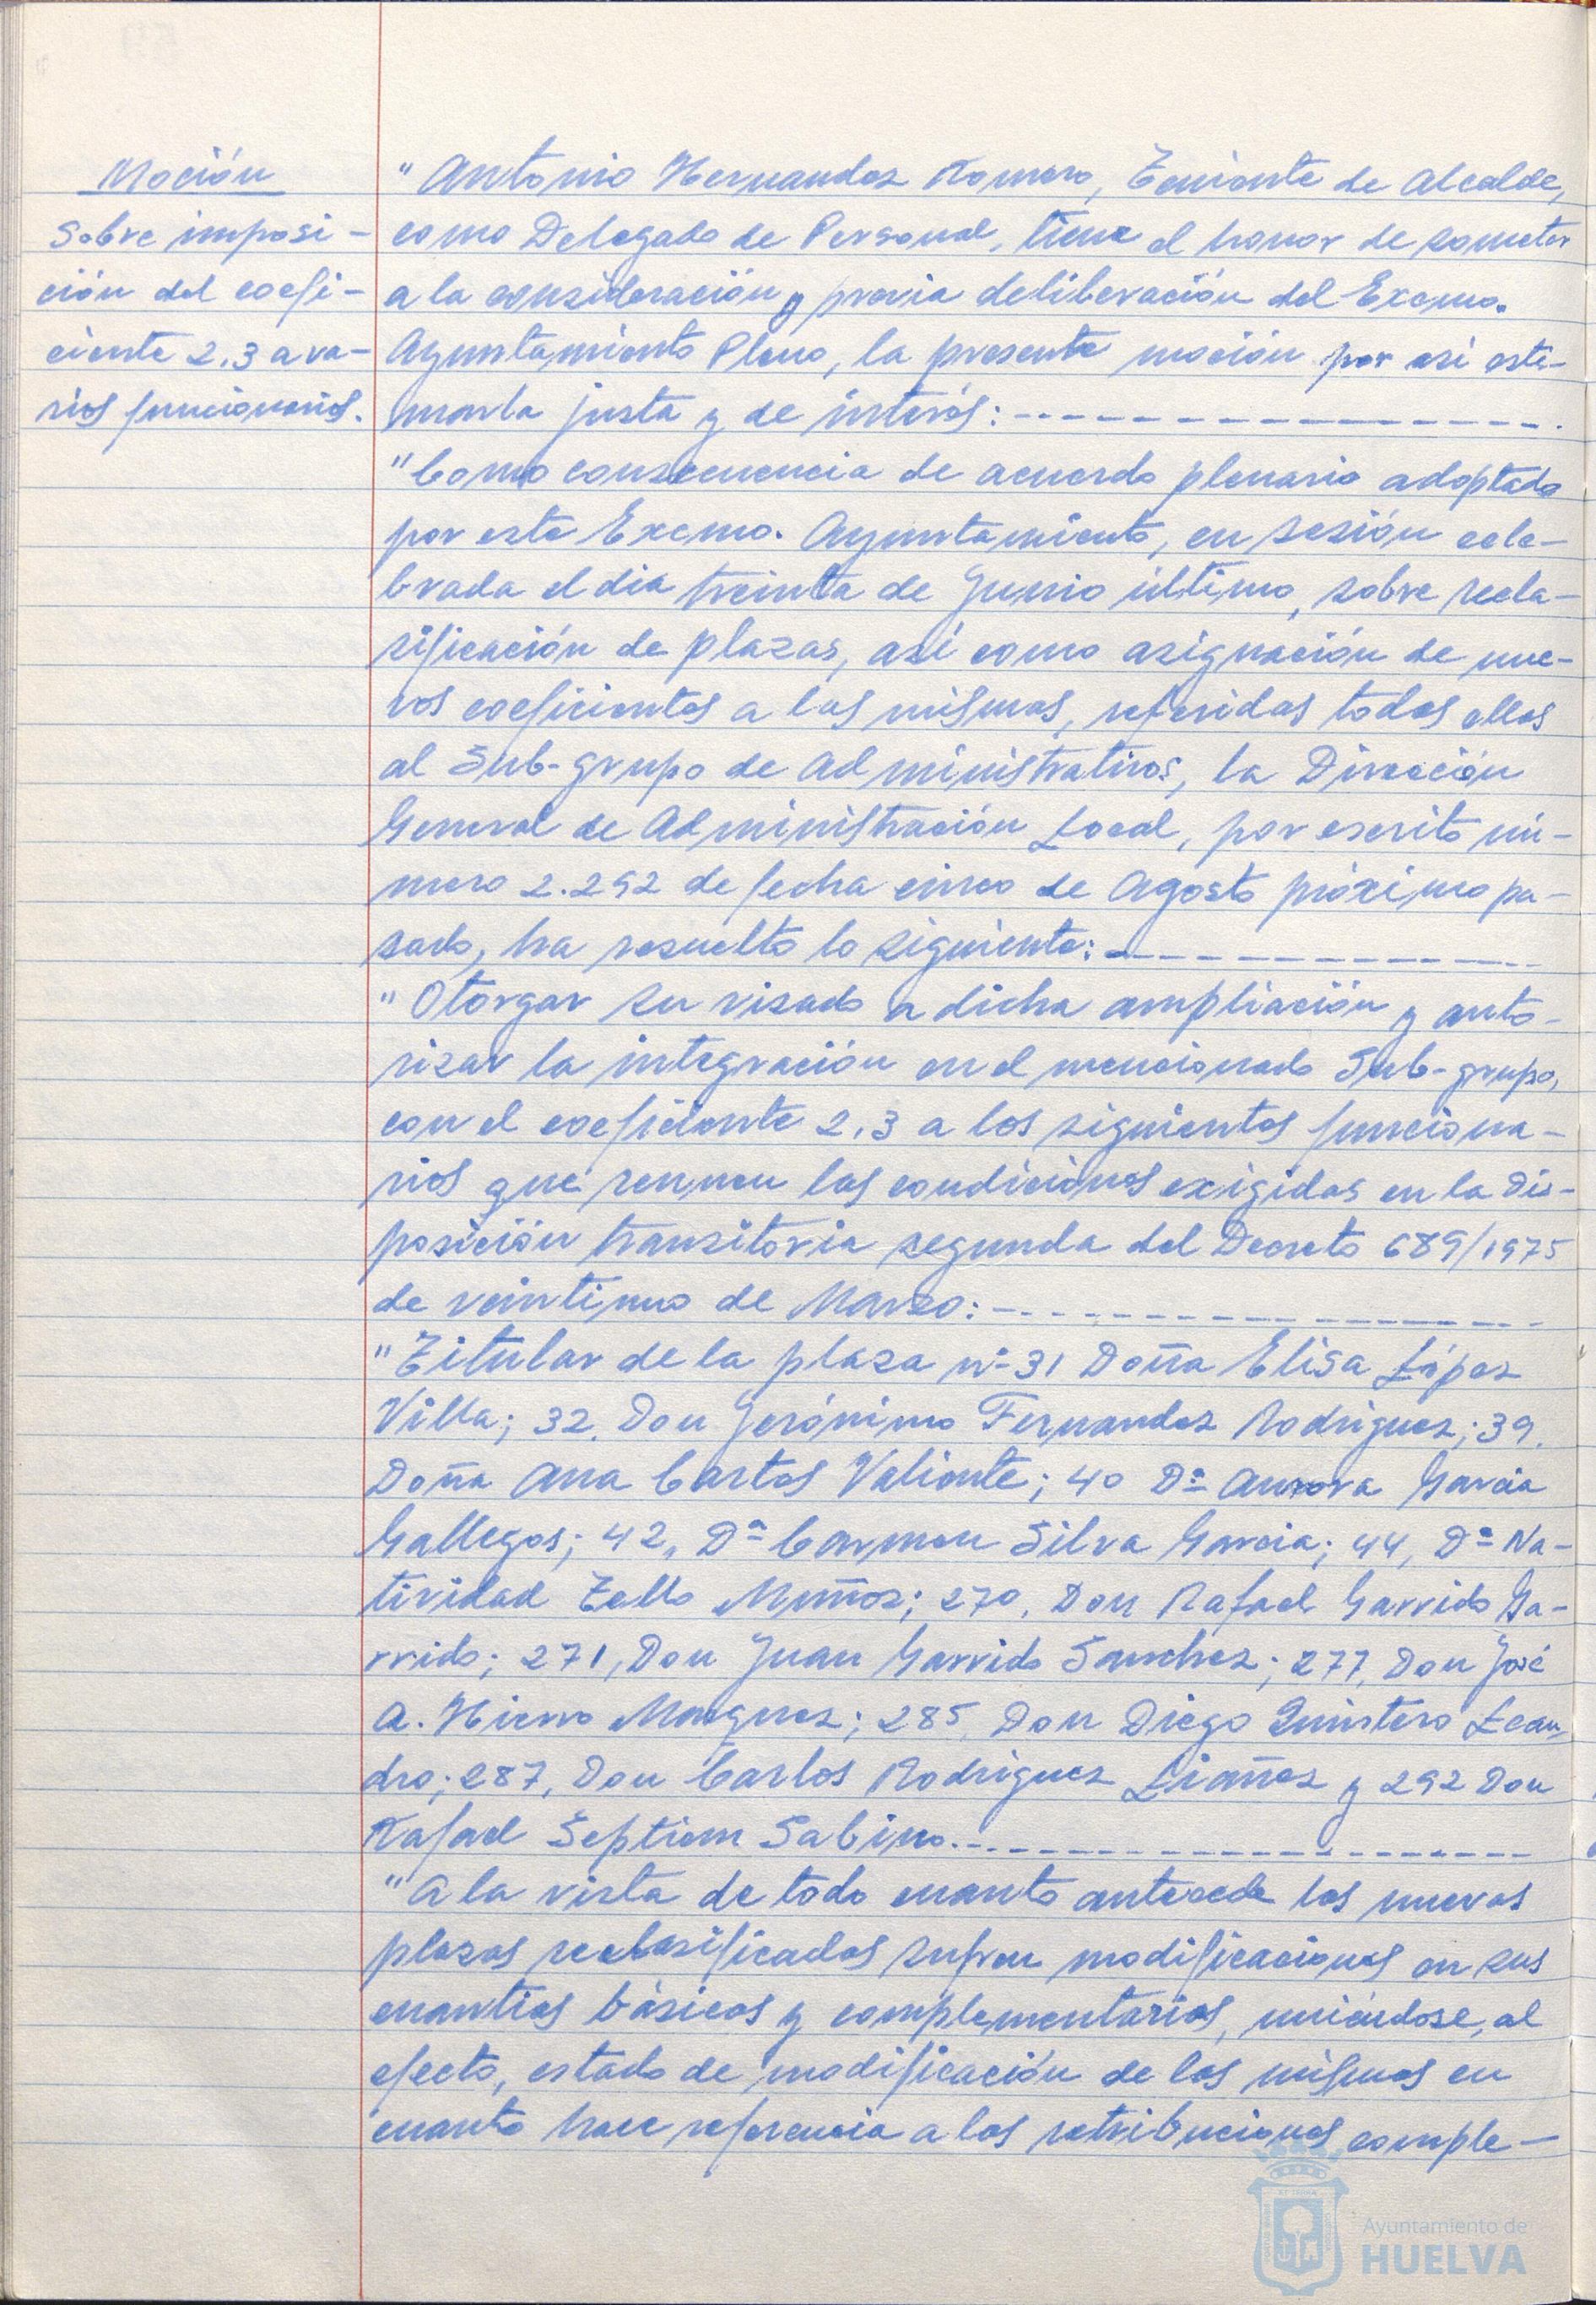 Moción
Sobre imposi-
ción del coefi-
ciente 2,3 a va-
rios funcionarios.
"Antonio Hernandez Romero, Teniente de Alcalde,
como Delegado de Personal, tiene el honor de someter
a la consideración y previa deliberación del Excmo.
Ayuntamiento Pleno, la presente moción por asi esti-
marla justa y de interés:
"Como consecuencia de acuerdo plenario adoptado
por este Excmo. Ayuntamiento, en sesión cele-
brada el dia treinta de Junio último, sobre recla-
sificación de plazas, asi como asignación de nue-
vos coeficientes a las mismas, referidas todas ellas
al Sub-grupo de Administrativos, la Dirección
General de Administración Local, por escrito nú-
mero 2.292 de fecha cinco de Agosto próximo pa-
sado, ha resuelto lo siguiente:
"Otorgar su visado a dicha ampliación y auto-
rizar la integración en el mencionado Sub-grupo,
con el coeficiente 2,3 a los siguientes funciona-
rios que reunen las condiciones exigidas en la Dis-
posición transitoria segunda del Decreto 689/1975
de veintiuno de Marzo:
"Titular de la plaza nº 31 Doña Elisa López
Villa; 32, Don Jerónimo Fernandez Rodriguez; 39,
Doña Ana Cartos Valiente; 40 Dª Aurora Garcia
Gallegos; 42, Dª Carmen Silva Garcia; 44, Dª Na-
tividad Tello Muñoz; 270, Don Rafael Garrido Ga-
rrido; 271, Don Juan Garrido Sanchez; 277, Don José
A. Hierro Marquez; 285, Don Diego Quintero Lean-
dro; 287, Don Carlos Rodriguez Liañez y 292 Don
Rafael Septiem Sabino.
"A la vista de todo cuanto antecede las nuevas
plazas reclasificadas sufren modificaciones en sus
cuantias básicas y complementarias, uniéndose, al
efecto, estado de modificación de las mismas en
cuanto hace referencia a las retribuciones comple-
Ayuntamiento de
HUELVA